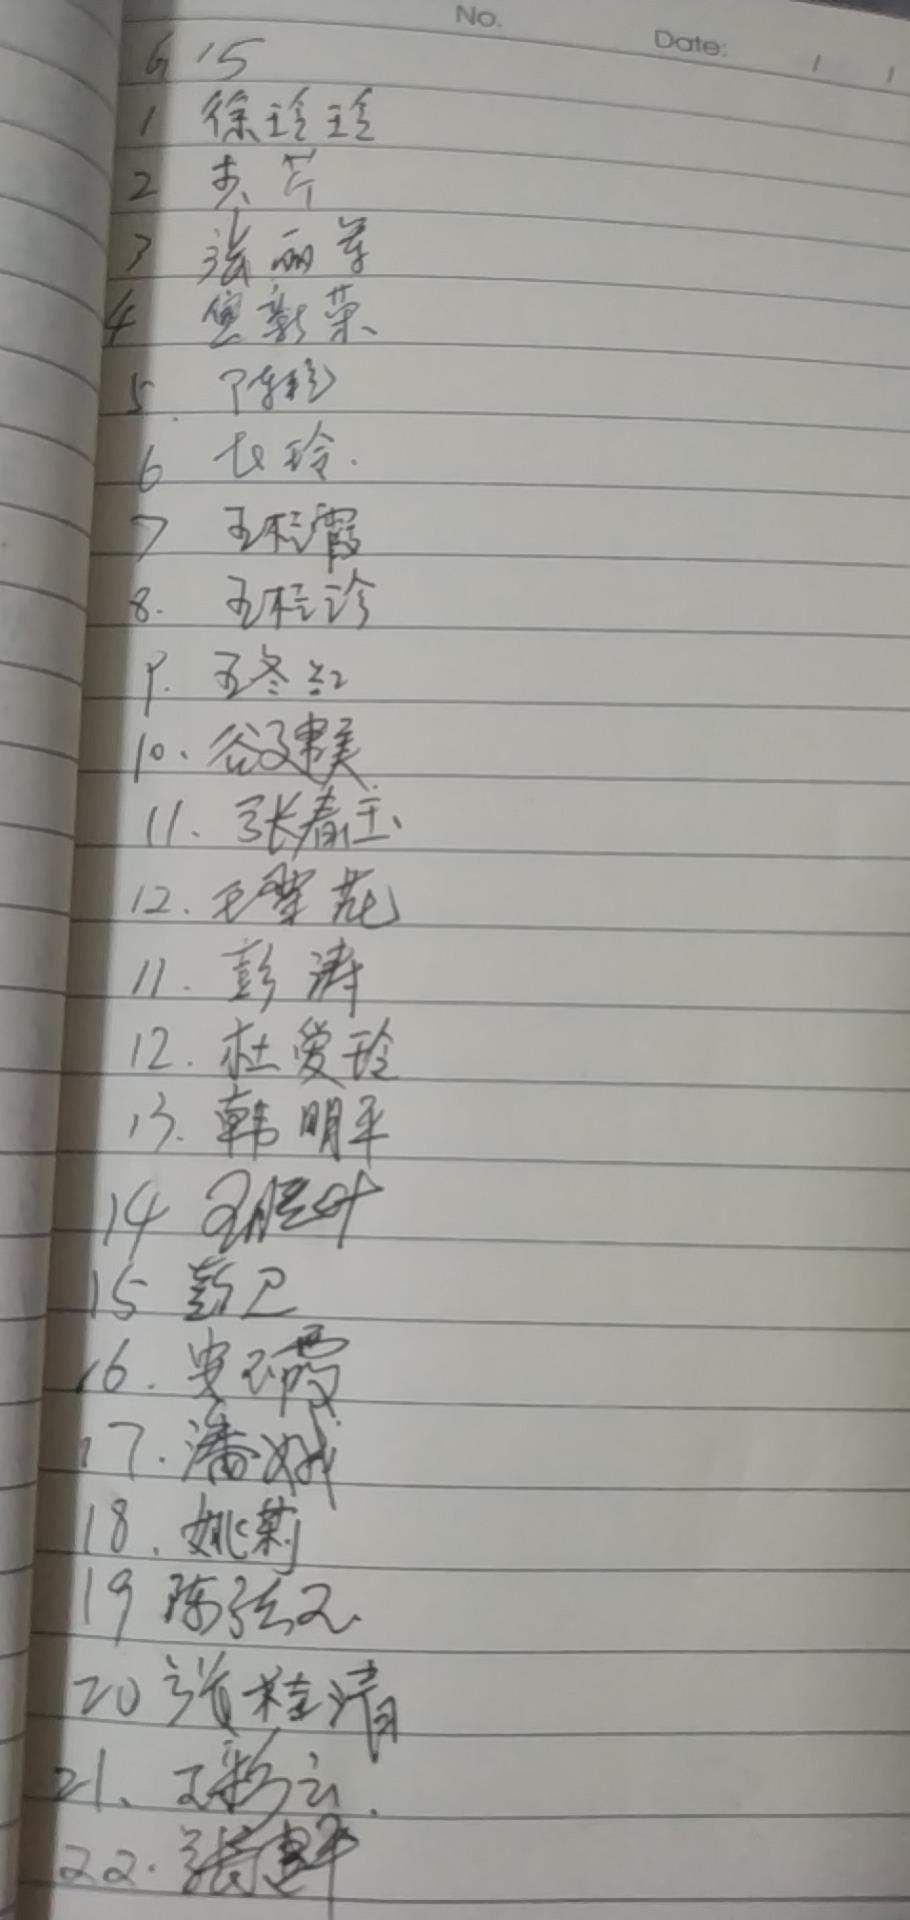 No.
Date: / /
6 15
1 徐玲玲
2 芹
3 张丽萍
4 新荣
5. 陈
6 玲.
7 王桂霞
8. 王桂珍
9. 王冬红
10. 谷建美
11. 张春玉
12. 王翠花
11. 彭涛
12. 杜爱玲
13. 韩明平
14 王 叶
15 彭卫
16. 安 霞
17. 潘娥
18. 姚莉
19 陈
20 张桂清
21. 王彩云.
22. 张